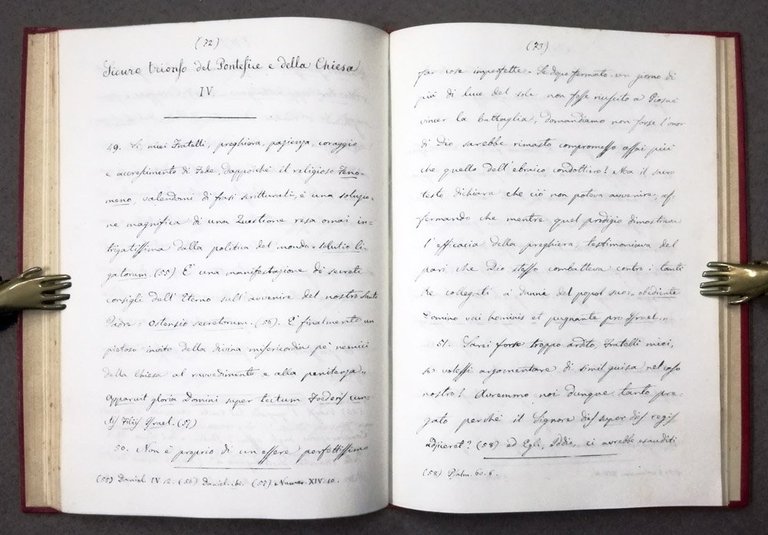 (72)
Sicuro trionfo del Pontefice e della Chiesa
IV.
49. miei Fratelli, preghiera, pazienza, coraggio
e accrescimento di Fede, dappoiché il religioso Feno-
meno, valendomi di frasi scritturali, è una soluzio-
ne magnifica di una Questione resa omai in-
trigatissima dalla politica del mondo = solutio li-
gatorum (55) È una manifestazione di secreti
consigli dell'Eterno sull'avvenire del nostro Santo
Padre: ostensio secretorum. (56). È finalmente un
pietoso invito della divina misericordia pe' nemici
della Chiesa al ravvedimento e alla penitenza =
Apparuit gloria Domini super tectum Foederis cunc-
tis Filiis Israel. (57)
50. Non è proprio di un essere perfettissimo
(55) Daniel IV. 12. (56) Daniel. ib. (57) Numer. XIV. 10.
(73)
far cose imperfette. Se dopo fermato un giorno di
più di luce del sole non fosse riuscito a Giosuè
vincer la battaglia, domandiamo non forse l'onor
di Dio sarebbe rimasto compromesso assai più
che quello dell'ebraico condottiero! Ma il sacro
testo dichiara che ciò non poteva avvenire, af-
fermando che mentre quel prodigio dimostrava
l'efficacia della preghiera, testimoniava del
pari che Dio stesso combatteva contro i tanti
Re collegati a danno del popol suo = obediente
Domino voci hominis et pugnante pro Israel.
51. Sarei forse troppo ardito, Fratelli miei,
se volessi argomentare di simil guisa nel caso
nostro! Avremmo noi dunque tanto pre-
gato perchè il Signore dies super dies regis
adjiceret? (58) ed Egli, Iddio, ci avrebbe esauditi
(58) Psalm. 60. 6.